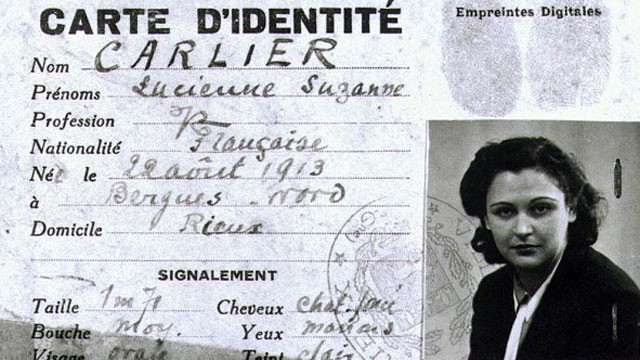 CARTE D'IDENTITÉ
Empreintes Digitales
Nom CARLIER
Prénoms Lucienne Suzanne
Profession
Nationalité Française
Né le 22 août 1913
à Bergues Nord
Domicile Rieux
SIGNALEMENT
Taille 1m70 Cheveux chat. foncé
Bouche moy. Yeux marrons
Visage ovale Teint clair